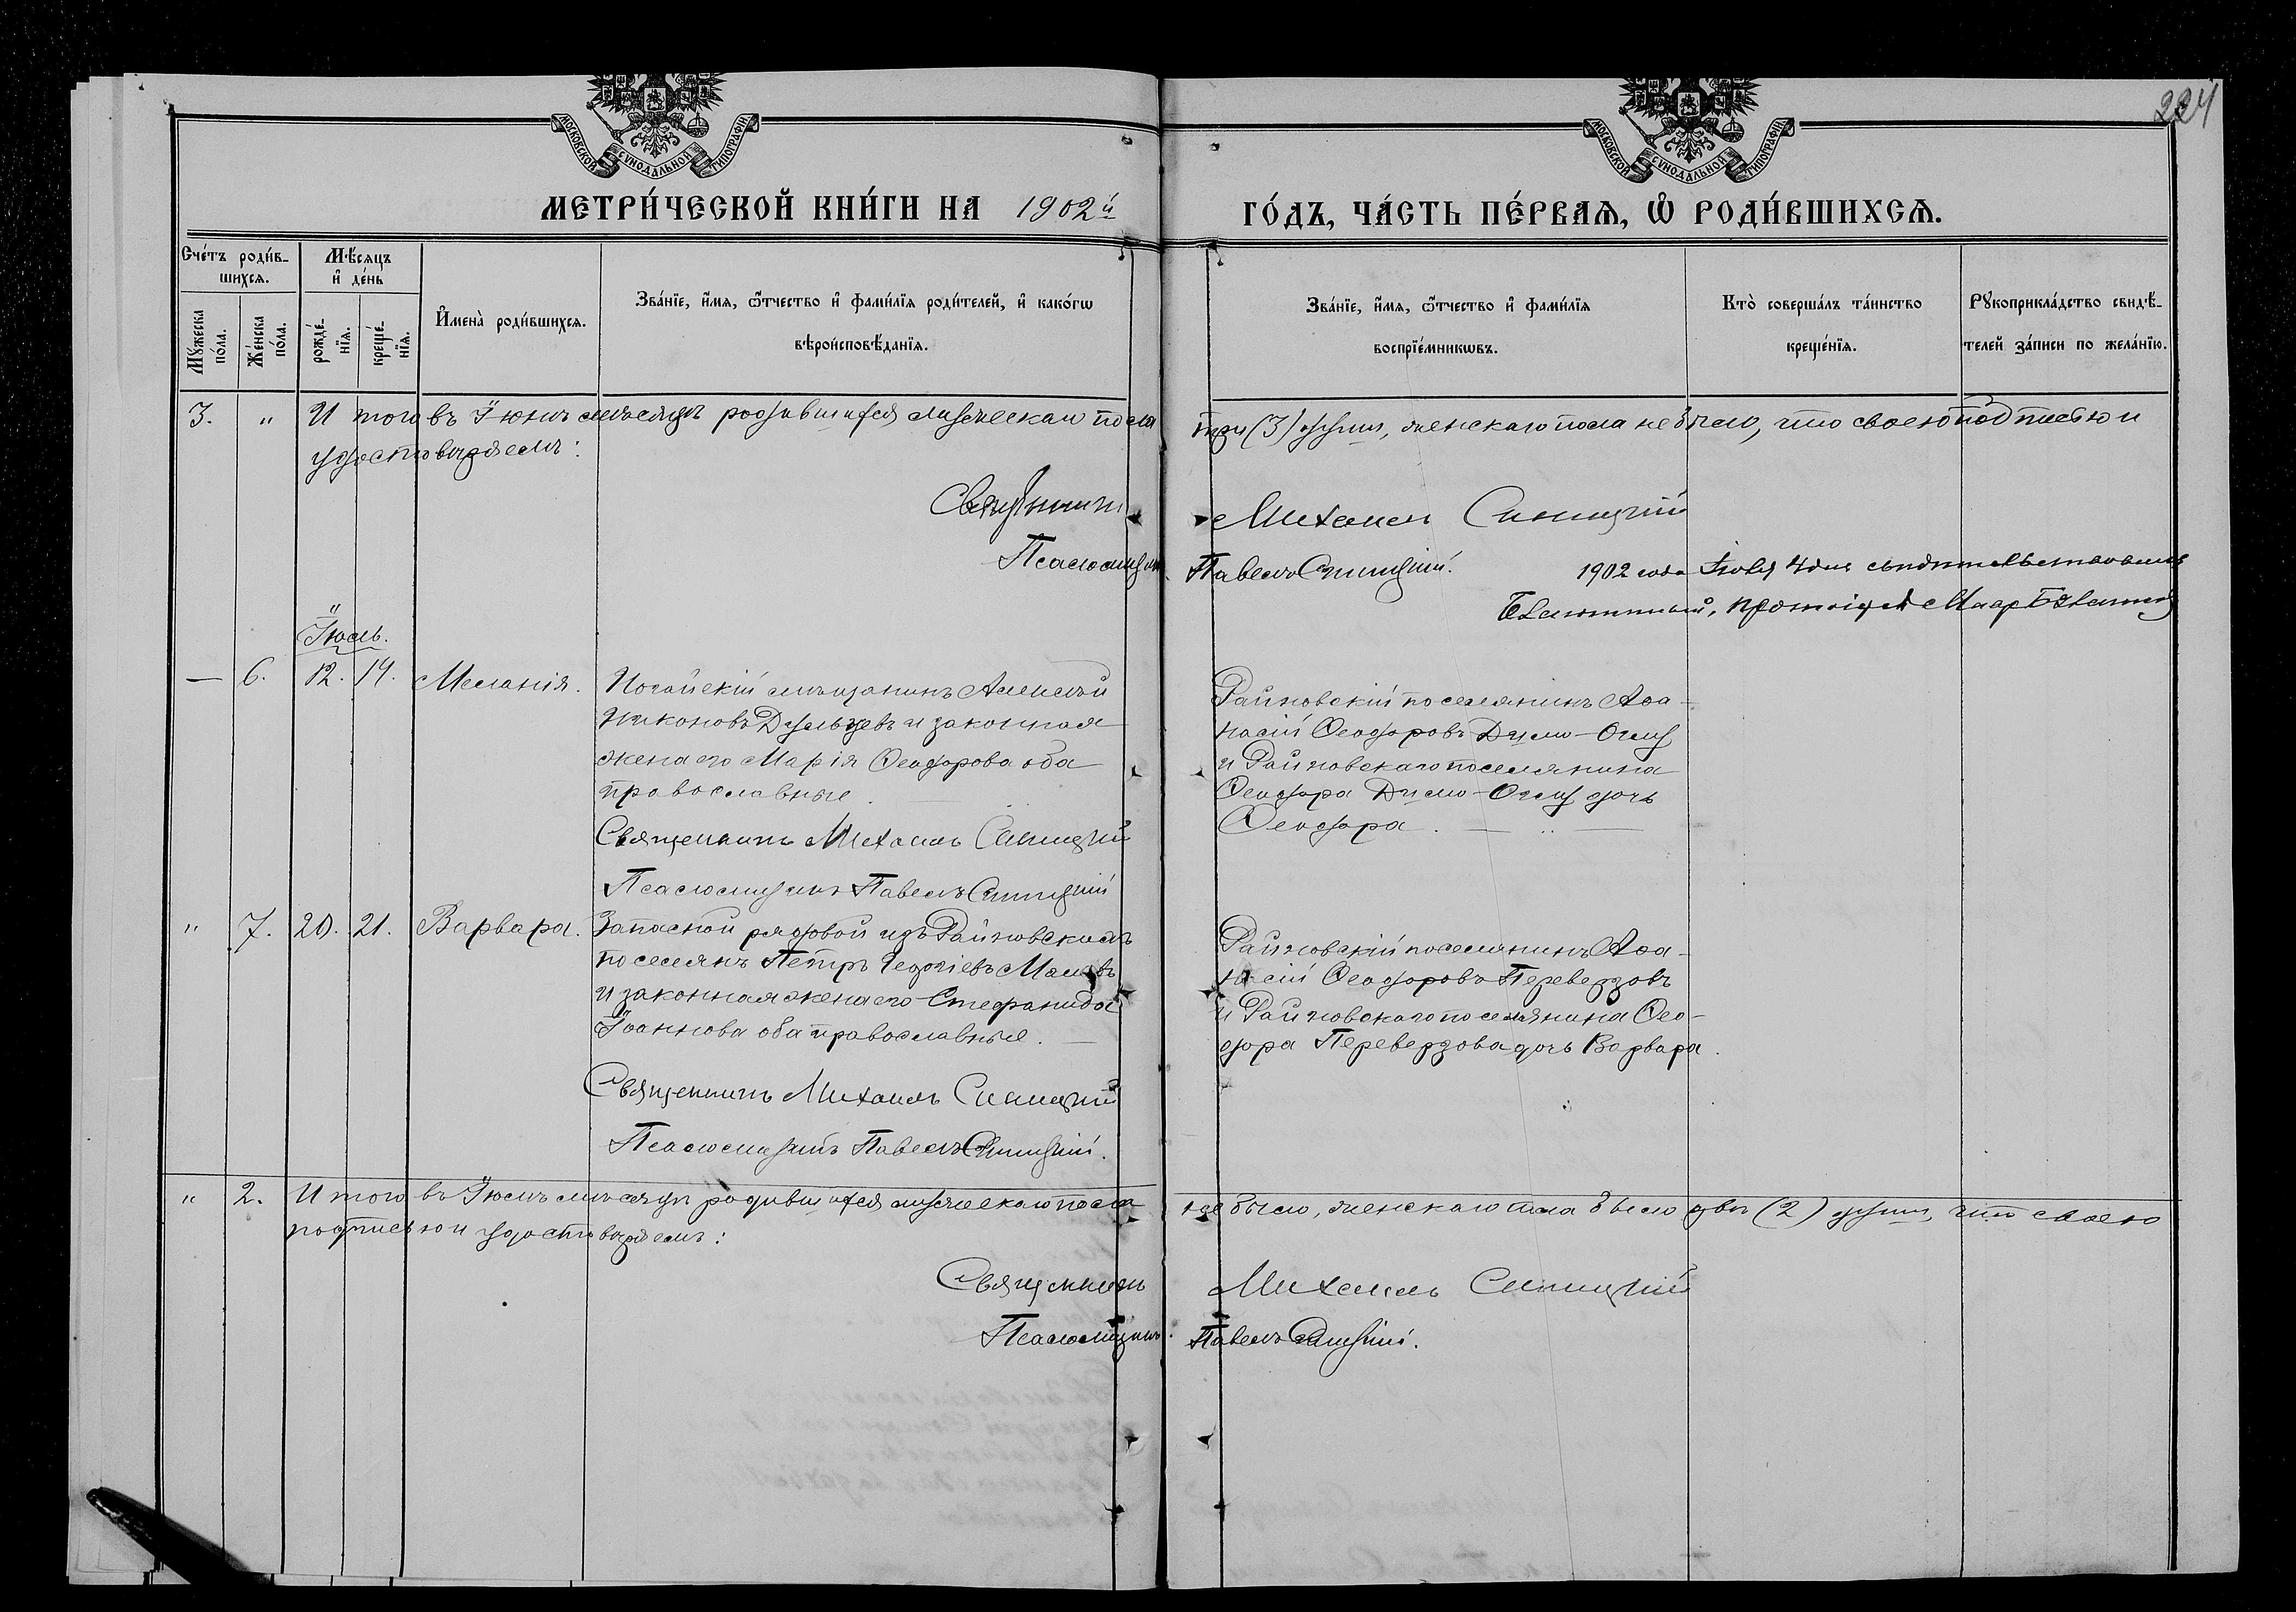 224
МОСКОВСКОЙ СѴНОДАЛЬНОЙ ТИПОГРАФІИ
МОСКОВСКОЙ СѴНОДАЛЬНОЙ ТИПОГРАФІИ
МЕТРИ́ЧЕСКОЙ КНИ́ГИ НА 1902й
ГО́ДЪ, ЧА́СТЬ ПЕ́РВАѦ, Ѽ РОДИ́ВШИХСѦ.
Сче́тъ роди́в-
шихсѧ.
Мꙋ́жеска по́ла.
Же́нска по́ла.
Мѣ́сѧцъ
и҆ де́нь
рожде́-
нїѧ.
креще́-
нїѧ.
И҆мена̀ роди́вшихсѧ.
Зва́нїе, и҆́мѧ, ѻ҆́тчество и҆ фами́лїѧ роди́телей, и҆ како́гѡ
вѣроисповѣ́данїѧ.
Зва́нїе, и҆́мѧ, ѻ҆́тчество и҆ фами́лїѧ
воспрїе́мникѡвъ.
Кто̀ соверша́лъ та́инство
креще́нїѧ.
Рꙋкоприкла́дство свидѣ́-
телей за́писи по жела́нїю.
3. „ Итого въ Іюнѣ мѣсяцѣ родившихся мужескаго пола
три (3) души, женскаго пола не было, что своею подписью и
удостовѣряемъ:
Священникъ
Михаилъ Синицкій
Псаломщикъ
Павелъ Синицкій.
1902 года 4 дня свидѣтельствовалъ
Благочинный, протоіерей
Іюль.
— 6. 12. 14. Меланія.
Ногайскій мѣщанинъ Алексѣй
Никоновъ Дульцевъ и законная
жена его Марія Ѳеодорова оба
православные.
Священникъ Михаилъ Синицкій
Псаломщикъ Павелъ Синицкій
Райновскій поселянинъ Аѳа-
насій Ѳеодоровъ Димо-Оглу
и Райновскаго поселянина
Ѳеодора Димо-Оглу дочь
Ѳеодора.
„ 7. 20. 21. Варвара.
Запасной рядовой изъ Райновскихъ
поселянъ Петръ Георгіевъ
и законная жена его Стефанида
Іоаннова оба православные.
Священникъ Михаилъ Синицкій
Псаломщикъ Павелъ Синицкій.
Райновскій поселянинъ Аѳа-
насій Ѳеодоровъ Перевердовъ
и Райновскаго поселянина Ѳео-
дора Перевердова дочь Варвара.
„ 2. Итого въ Іюлѣ мѣсяцѣ родившихся мужескаго пола
не было, женскаго пола было двѣ (2) души, что своею
подписью и удостовѣряемъ:
Священникъ
Михаилъ Синицкій
Псаломщикъ.
Павелъ Синицкій.